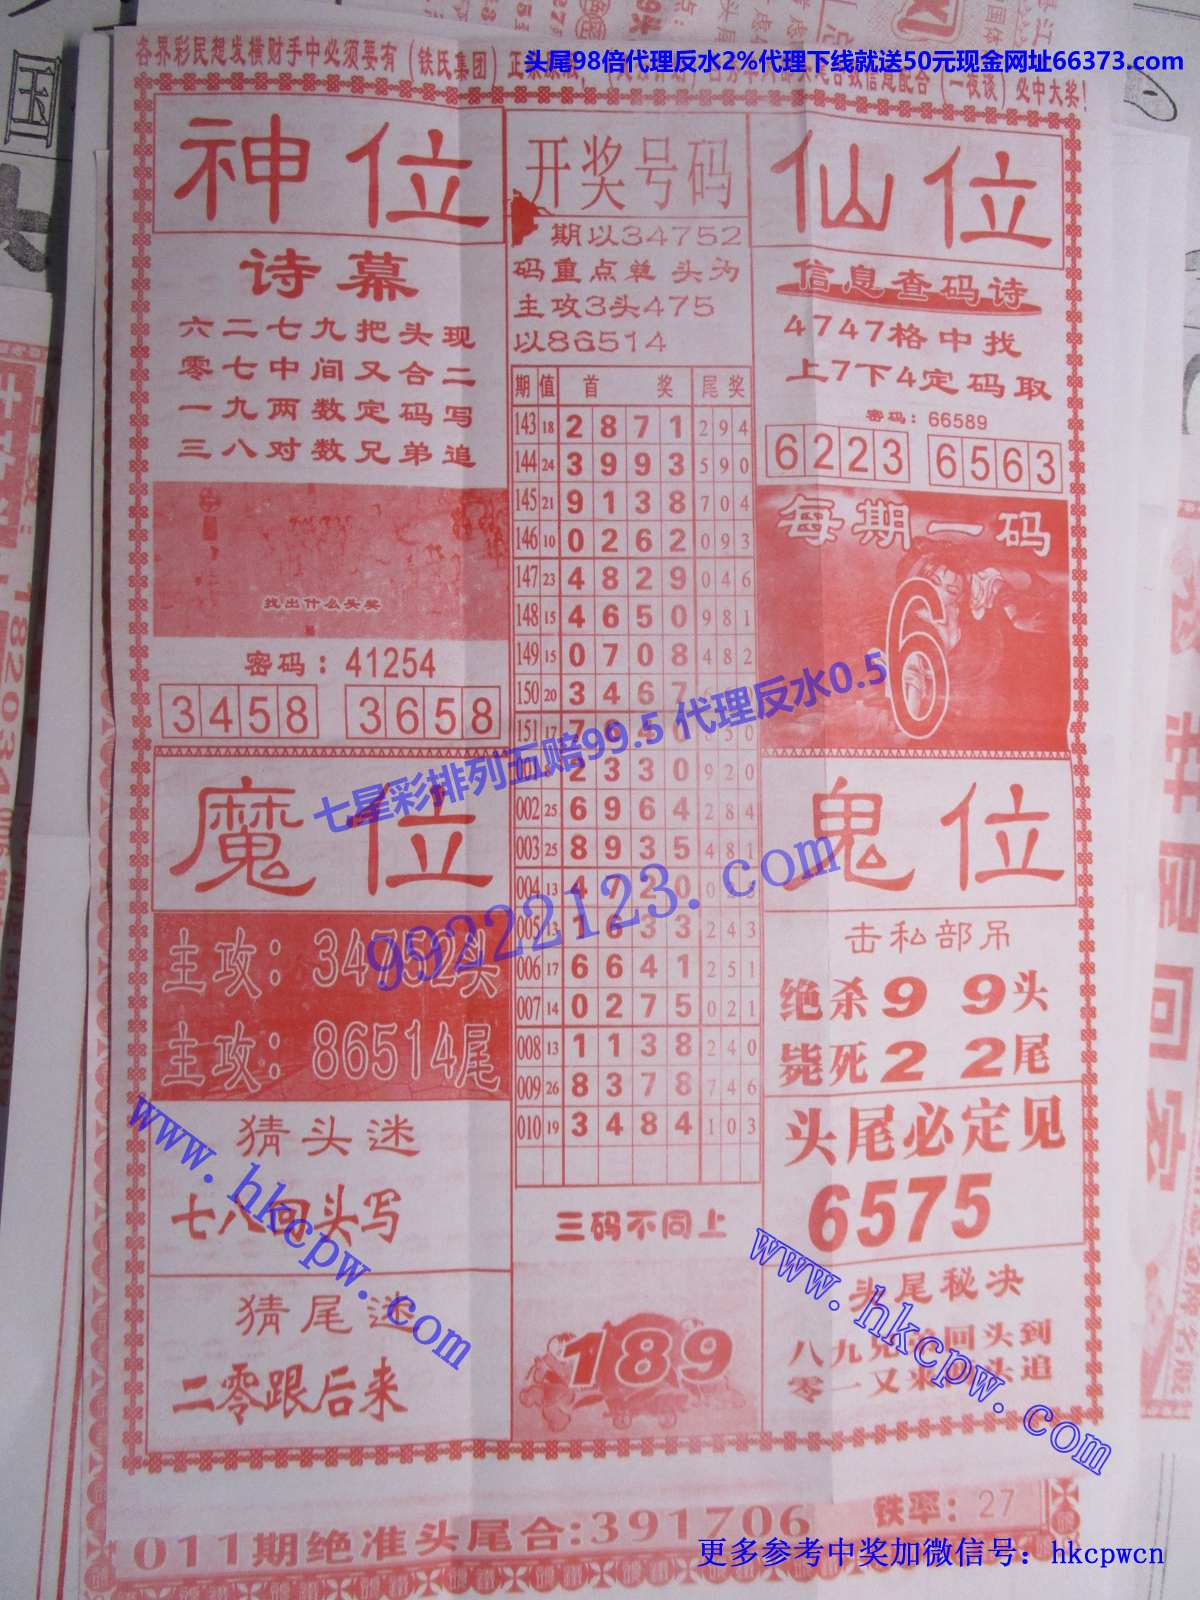 头尾98倍代理反水2%代理下线就送50元现金网址66373.com
各界彩民想发横财手中必须要有(铁氏集团)正
配合(一夜谈)必中大奖!
神位
诗幕
六二七九把头现
零七中间又合二
一九两数定码写
三八对数兄弟追
找出什么头奖
密码:41254
3458 3658
开奖号码
期以34752
码重点单头为
主攻3头475
以86514
期 值 首 奖 尾 奖
143 18 2 8 7 1 2 9 4
144 24 3 9 9 3 5 9 0
145 21 9 1 3 8 7 0 4
146 10 0 2 6 2 0 9 3
147 23 4 8 2 9 0 4 6
148 15 4 6 5 0 9 8 1
149 15 0 7 0 8 4 8 2
150 20 3 4 6 7
151 17 7 4 5 0
2 3 3 0 9 2 0
002 25 6 9 6 4 2 8 4
003 25 8 9 3 5 4 8 1
004 13 4 7 2 0
005 13 1 6 3 3 2 4 3
006 17 6 6 4 1 2 5 1
007 14 0 2 7 5 0 2 1
008 13 1 1 3 8 2 4 0
009 26 8 3 7 8 7 4 6
010 19 3 4 8 4 1 0 3
三码不同上
189
仙位
信息查码诗
4747格中找
上7下4定码取
密码:66589
6223 6563
每期一码
6
七星彩排列五赔99.5 代理反水0.5
99222123.com
魔位
主攻:34752头
主攻:86514尾
猜头迷
七八回头写
猜尾迷
二零跟后来
鬼位
击私部吊
绝杀9 9头
毙死2 2尾
头尾必定见
6575
头尾秘决
八九兄弟回头到
零一又来回头追
www.hkcpw.com
www.hkcpw.com
011期绝准头尾合:391706
铁率:27
更多参考中奖加微信号:hkcpwcn